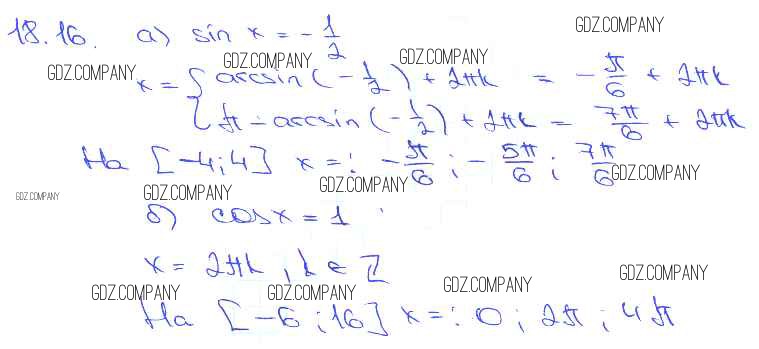 18.16. а) sin x = - 1/2
GDZ.COMPANY
GDZ.COMPANY GDZ.COMPANY GDZ.COMPANY
x = { arcsin (- 1/2) + 2πk = - π/6 + 2πk
π - arcsin (- 1/2) + 2πk = 7π/6 + 2πk
На [-4; 4] x = : - π/6 ; - 5π/6 ; 7π/6
GDZ.COMPANY GDZ.COMPANY GDZ.COMPANY GDZ.COMPANY
б) cos x = 1
x = 2πk, k ∈ Z
GDZ.COMPANY GDZ.COMPANY GDZ.COMPANY GDZ.COMPANY
На [-6; 16] x = : 0 ; 2π ; 4π